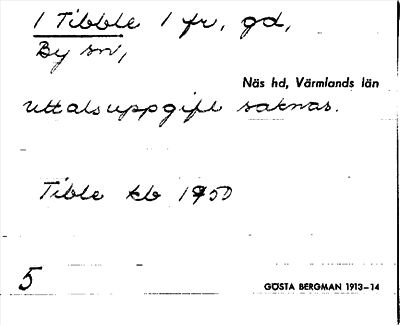 1 Tibble 1 fr, gd,
By sn,
Näs hd, Värmlands län
uttalsuppgift saknas.
Tible kb 1950
5
GÖSTA BERGMAN 1913–14